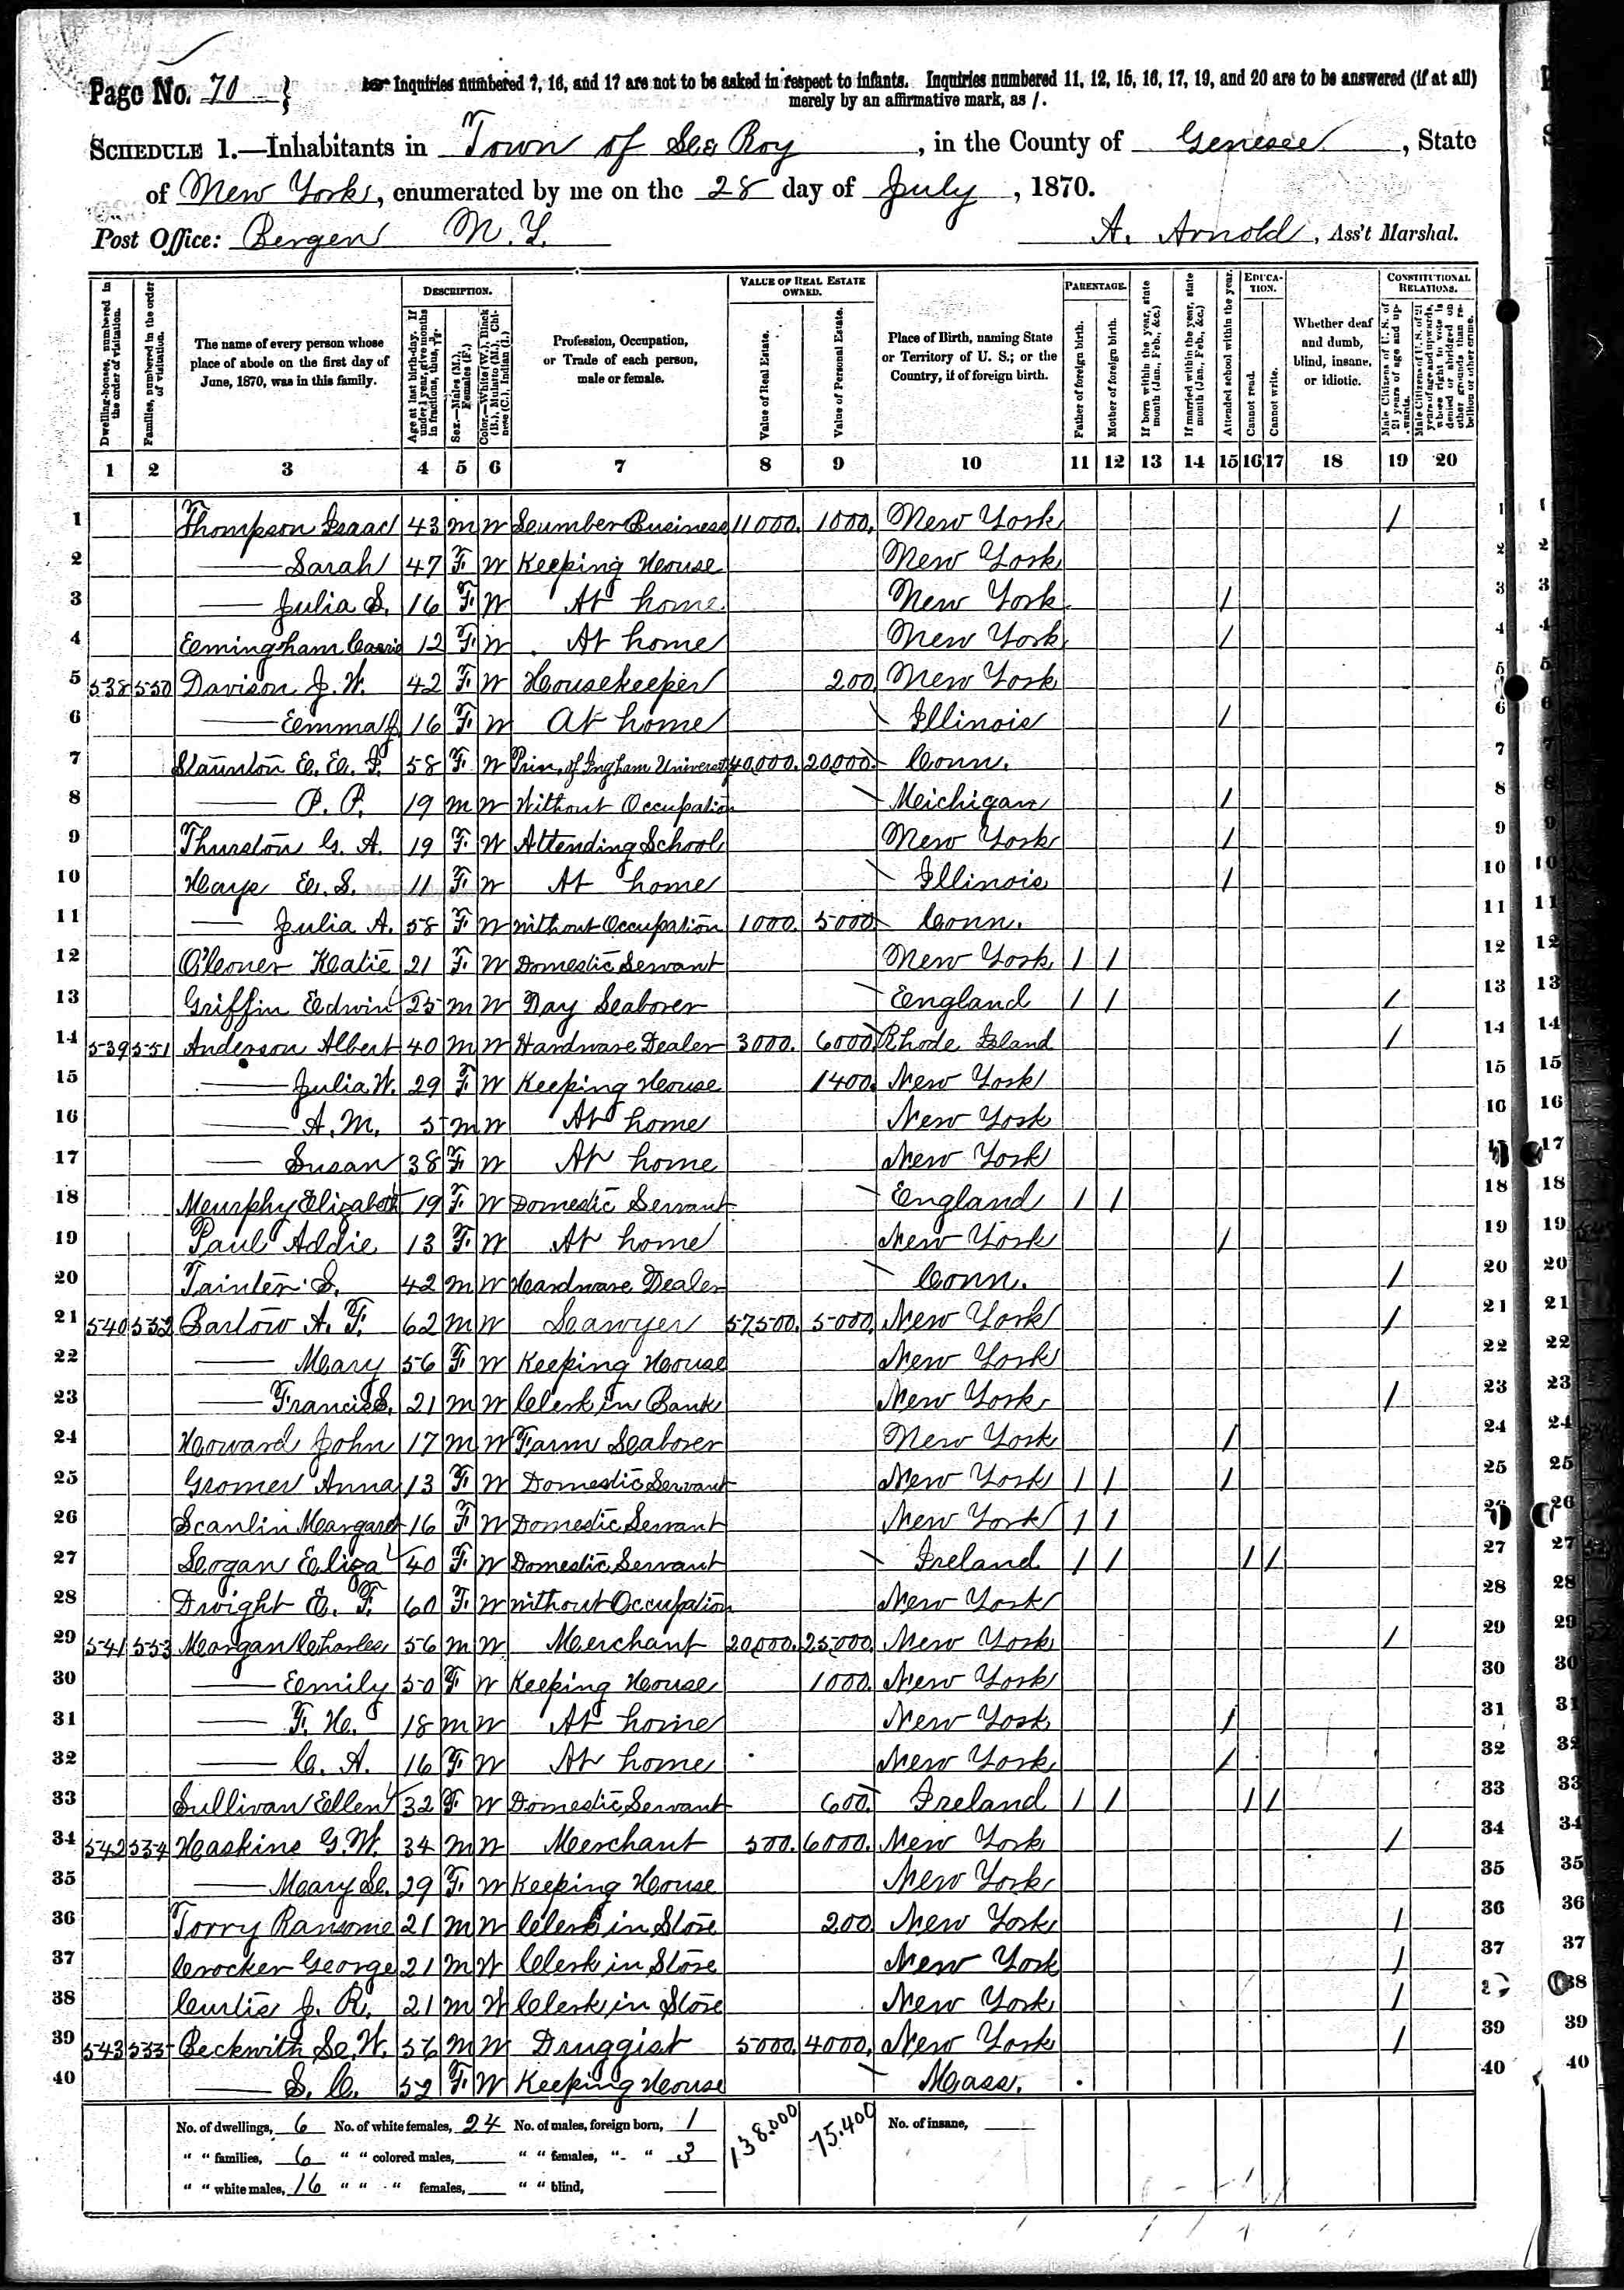 Page No. 70 } Inquiries numbered 7, 16, and 17 are not to be asked in respect to infants. Inquiries numbered 11, 12, 15, 16, 17, 19, and 20 are to be answered (if at all)
merely by an affirmative mark, as /.
SCHEDULE 1.—Inhabitants in Town of Le Roy, in the County of Genesee, State
of New York, enumerated by me on the 28 day of July, 1870.
Post Office: Bergen N.Y. A. Arnold, Ass't Marshal.
Dwelling-houses, numbered in the order of visitation.
Families, numbered in the order of visitation.
The name of every person whose place of abode on the first day of June, 1870, was in this family.
DESCRIPTION.
Age at last birth-day. If under 1 year, give months in fractions, thus, 3/12.
Sex.—Males (M.), Females (F.)
Color.—White (W.), Black (B.), Mulatto (M.), Chinese (C.), Indian (I.)
Profession, Occupation, or Trade of each person, male or female.
VALUE OF REAL ESTATE OWNED.
Value of Real Estate.
Value of Personal Estate.
Place of Birth, naming State or Territory of U. S.; or the Country, if of foreign birth.
PARENTAGE.
Father of foreign birth.
Mother of foreign birth.
If born within the year, state month (Jan., Feb., &c.)
If married within the year, state month (Jan., Feb., &c.)
Attended school within the year.
EDUCATION.
Cannot read.
Cannot write.
Whether deaf and dumb, blind, insane, or idiotic.
CONSTITUTIONAL RELATIONS.
Male Citizens of U. S. of 21 years of age and upwards.
Male Citizens of U. S. of 21 years of age and upwards, whose right to vote is denied or abridged on other grounds than rebellion or other crime.
1 2 3 4 5 6 7 8 9 10 11 12 13 14 15 16 17 18 19 20
1 Thompson Isaac 43 M W Lumber Business 11000. 1000. New York / 1
2 —— Sarah 47 F. W Keeping House New York 2
3 —— Julia S. 16 F. W At home New York / 3
4 Emingham Carrie 12 F. W At home New York / 4
5 538 550 Davison J. W. 42 F. W Housekeeper 200 New York 5
6 —— Emma J 16 F. W At home Illinois / 6
7 Staunton E. E. I. 58 F. W Prin. of Ingham University 40,000. 20,000. Conn. 7
8 —— P. P. 19 M W Without Occupation Michigan / 8
9 Thurston G. A. 19 F. W Attending School New York / 9
10 Haye E. S. 11 F. W At home Illinois / 10
11 —— Julia A. 58 F. W without Occupation 1000. 5000 Conn. 11
12 Katie 21 F. W Domestic Servant New York / / 12
13 Griffin Edwin 25 M W Day Laborer England / / / 13
14 539 551 Anderson Albert 40 M W Hardware Dealer 3000. 6000 Rhode Island / 14
15 —— Julia W. 29 F. W Keeping House 1400. New York 15
16 —— A. M. 5 M W At home New York 16
17 —— Susan 38 F. W At home New York 17
18 Murphy Elizabeth 19 F. W Domestic Servant England / / 18
19 Paul Addie 13 F. W At home New York / 19
20 Tainter S. 42 M W Hardware Dealer Conn. / 20
21 540 552 Bartow A. F. 62 M W Lawyer 57,500. 5000. New York / 21
22 —— Mary 56 F. W Keeping House New York 22
23 —— Francis S. 21 M W Clerk in Bank New York / 23
24 Howard John 17 M W Farm Laborer New York / 24
25 Gromer Anna 13 F. W Domestic Servant New York / / / 25
26 Scanlin Margaret 16 F. W Domestic Servant New York / / 26
27 Logan Eliza 40 F. W Domestic Servant Ireland / / / / 27
28 Dwight E. F. 60 F. W without Occupation New York 28
29 541 553 Morgan Charles 56 M W Merchant 20,000. 25,000. New York / 29
30 —— Emily 50 F. W Keeping House 1000. New York 30
31 —— F. H. 18 M W At home New York / 31
32 —— C. A. 16 F. W At home New York / 32
33 Sullivan Ellen 32 F. W Domestic Servant 600. Ireland / / / / 33
34 542 554 Haskins G. W. 34 M W Merchant 500. 6000. New York / 34
35 —— Mary L. 29 F. W Keeping House New York 35
36 Torry Ransome 21 M W Clerk in Store 200 New York / 36
37 Crocker George 21 M W Clerk in Store New York / 37
38 Curtis J. R. 21 M W Clerk in Store New York / 38
39 543 555 Beckwith L. W. 56 M W Druggist 5000. 4000. New York / 39
40 —— S. C. 52 F. W Keeping House Mass. 40
No. of dwellings, 6 No. of white females, 24 No. of males, foreign born, 1 138.000 75.400 No. of insane,
" " families, 6 " " colored males, " " females, " " 3
" " white males, 16 " " " females, " " blind,